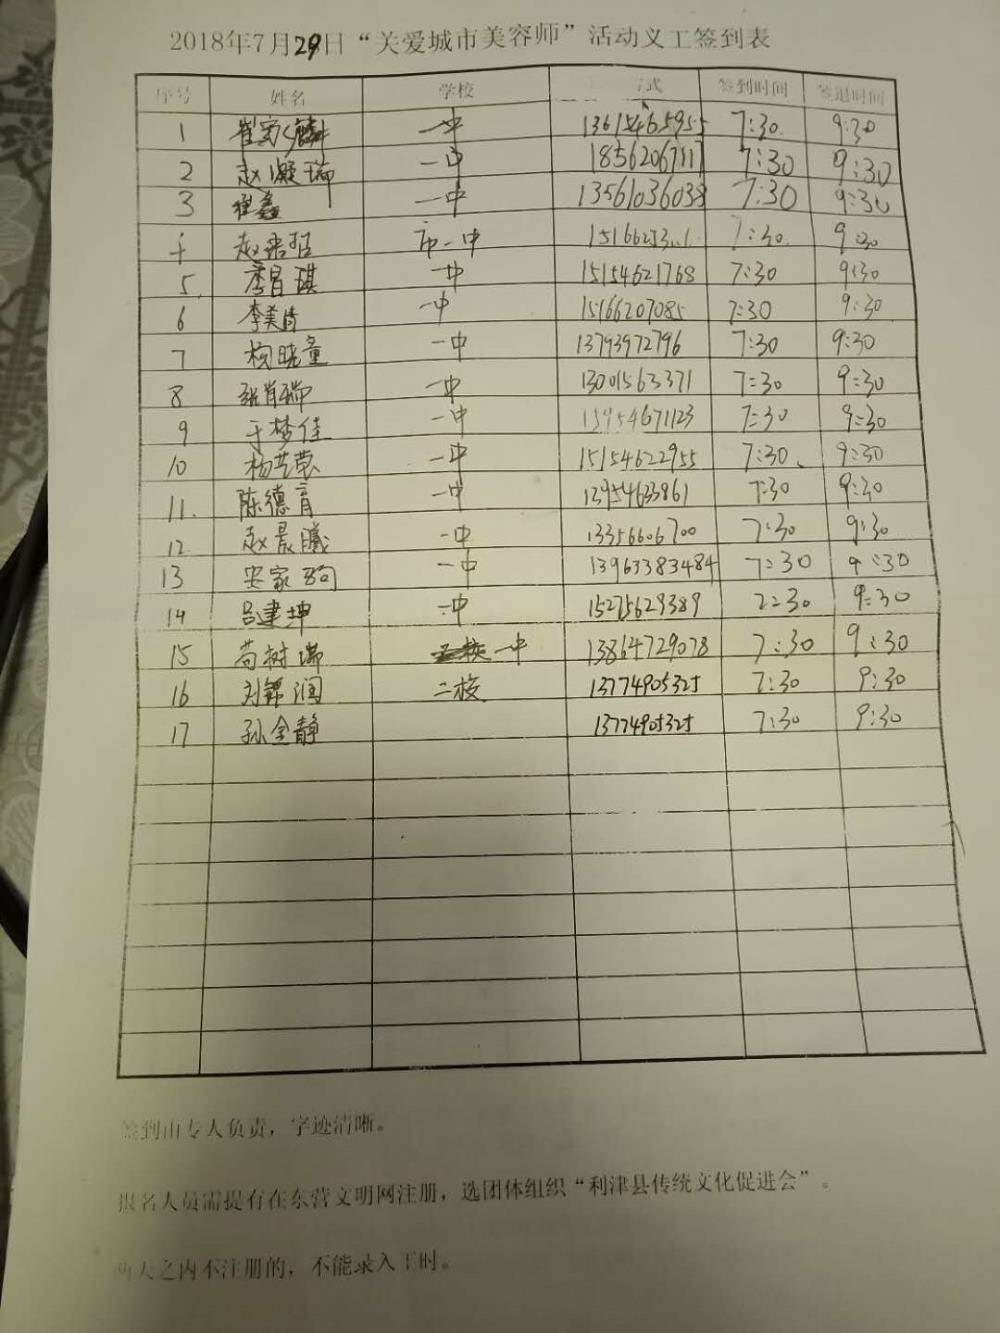 2018年7月29日“关爱城市美容师”活动义工签到表
序号 姓名 学校 式 签到时间 签退时间
1 崔家麟 一中 13615465955 7:30 9:30
2 赵凝瑞 一中 18562067117 7:30 9:30
3 崔鑫 一中 13561036038 7:30 9:30
市一中 7:30 9:30
5 李昌琪 一中 15154621768 7:30 9:30
6 李美诗 一中 15166207085 7:30 9:30
7 杨晓童 一中 13793972796 7:30 9:30
8 张肖瑞 一中 13001563371 7:30 9:30
9 于梦佳 一中 15954671123 7:30 9:30
10 杨芸荣 一中 15154622955 7:30 9:30
11 陈德育 一中 13954633861 7:30 9:30
12 赵晨曦 一中 13356606700 7:30 9:30
13 安家驹 一中 13963383484 7:30 9:30
14 吕建坤 一中 15275629389 7:30 9:30
15 苟树瑞 一中 13864729078 7:30 9:30
16 刘锦润 二校 13774905325 7:30 9:30
17 孙金静 13774905325 7:30 9:30
签到由专人负责，字迹清晰。
报名人员需提有在东营文明网注册，选团体组织“利津县传统文化促进会”。
两天之内不注册的，不能录入工时。